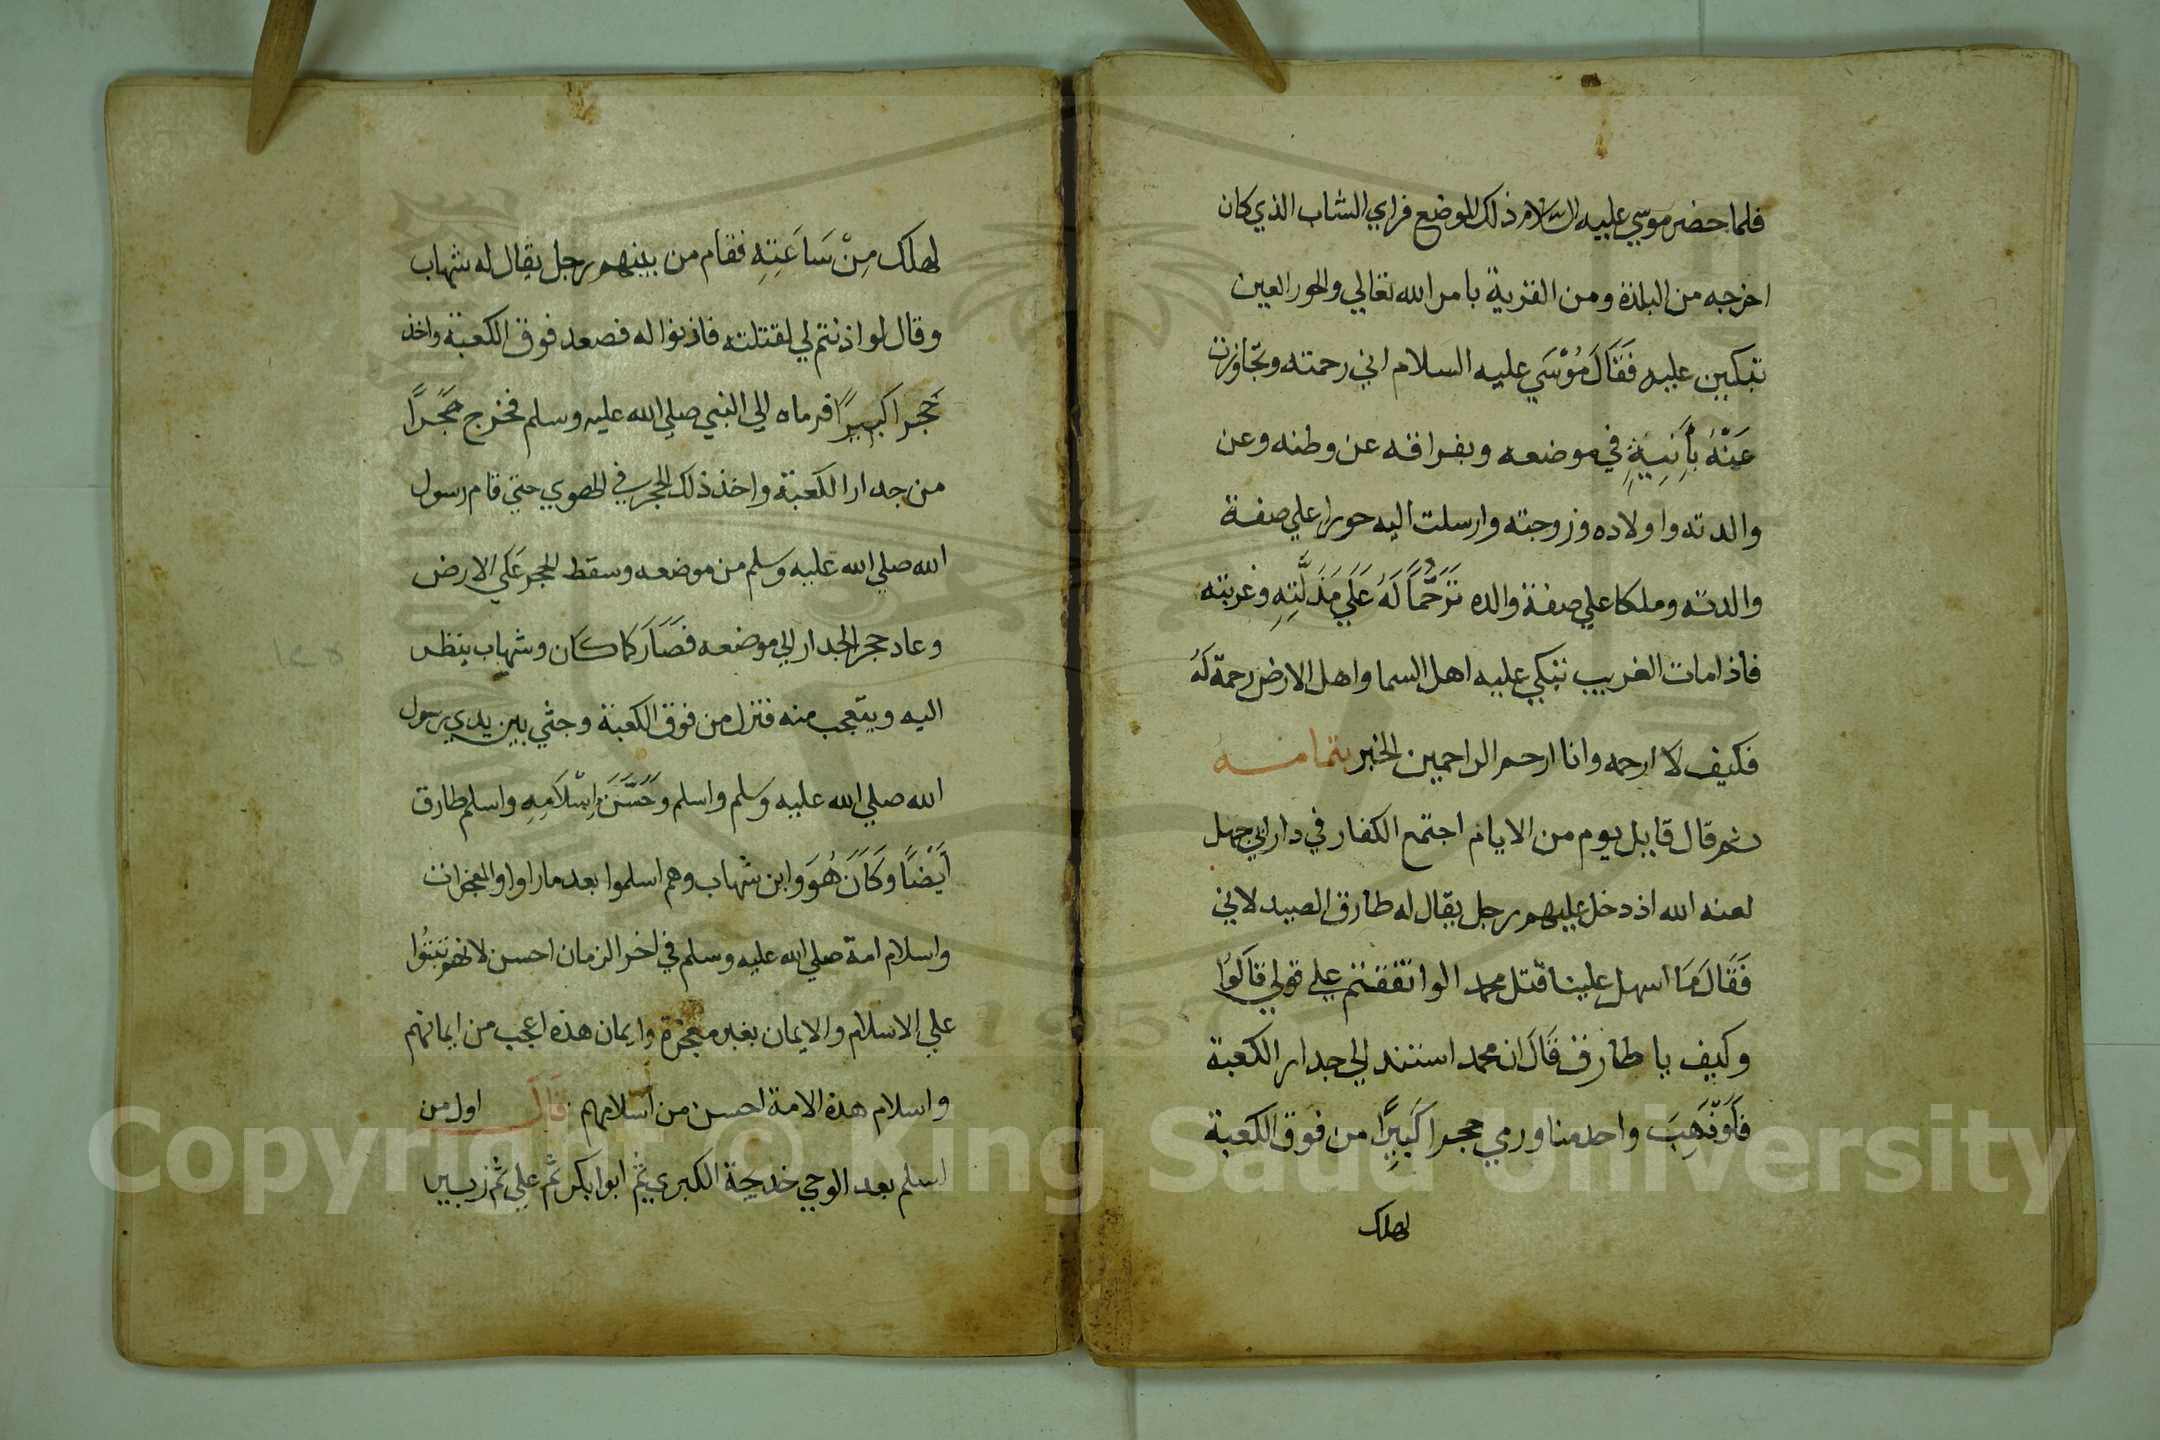 فلما حضر موسي عليه السلام ذلك الموضع فراي الشاب الذي كان
اخرجه من البلدة ومن القرية بامر الله تعالي والحور العين
تبكين عليه فَقَالَ مُوْسَي عليه السلام اني رحمته وتجاوزت
عَنْهُ بِأَنِيِةِ في موضعه وبفراقه عن وطنه وعن
والدته واولاده وزوجته وارسلت اليه حورا علي صفة
والدته وملكا علي صفة والده تَرَحُّمًا لَهُ عَلَي مَذَلَّتِهِ وغربته
فاذا مات الغريب تبكي عليه اهل السما واهل الارض رحمة لَهُ
فكيف لا ارحمه وانا ارحم الراحمين الخبر بتمامه
ثم قال قايل يوم من الايام اجتمع الكفار في دار ابي جهل
لعنه الله اذ دخل عليهم رجل يقال له طارق الصيدلاني
فَقَالَ مَا اسهل علينا قتل محمد الوا تفقتم علي قولي قَالَوُا
وكيف يا طارق قَالَ ان محمد استند الي جدار الكعبة
فَلَوْ ذَهَبَ واحد منا ورمي حجرا كَبِيرًا من فوق الكعبة
لهلك
لهلك مِنْ سَاعَتِهِ فقام من بينهم رجل يقال له شهاب
وقال لو اذنتم لي لقتلته فاذنوا له فصعد فوق الكعبة واخذ
حَجرا كبِيرًا فرماه الي النبي صلي الله عليه وسلم فخرج حَجَرًا
من جدار الكعبة واخذ ذلك الحجر في الهوي حتي قام رسول
الله صلي الله عليه وسلم من موضعه وسقط الحجر عَلَي الارض
وعاد حجر الجدار الي موضعه فَصَارَ كما كَان وشهاب ينظر
اليه ويتعجب منه فنزل من فوق الكعبة وجثي بين يدي رسول
الله صلي الله عليه وسلم واسلم وَحَسَّنَ اِسْلَامِهِ واسلم طارق
أَيْضًا وَكَانَ هُوَ وابن شهاب وهم اسلموا بعد ما راوا والمعجزات
واسلام امة صلي الله عليه وسلم في اخر الزمان احسن لانهم ثبتُوا
علي الاسلام والايمان بغير معجزة وايمان هذه اعجب من ايمانهم
واسلام هذه الامة احسن من اسلامهم قَالَ اول من
اسلم بعد الوحي خديجة الكبري ثم ابوابكر ثم علي ثم زبير
Copyright © King Saud University
1957